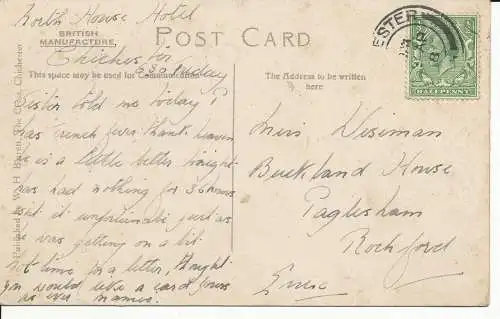 North House Hotel
BRITISH
MANUFACTURE
POST CARD
Chichester
5.30 Friday
This space may be used for Communication
The Address to be written
here
Sister told me today P
has Trench fever thank heaven
he is a little better tonight
has had nothing for 36 hours
isn't it unfortunate just as
he was getting on a bit
not time for a letter, thought
you would like a card yours
as ever
Published by W. H. Barrett, The Cross, Chichester
Miss Wiseman
Buckland House
Paglesham
Rochford
Essex
HALFPENNY